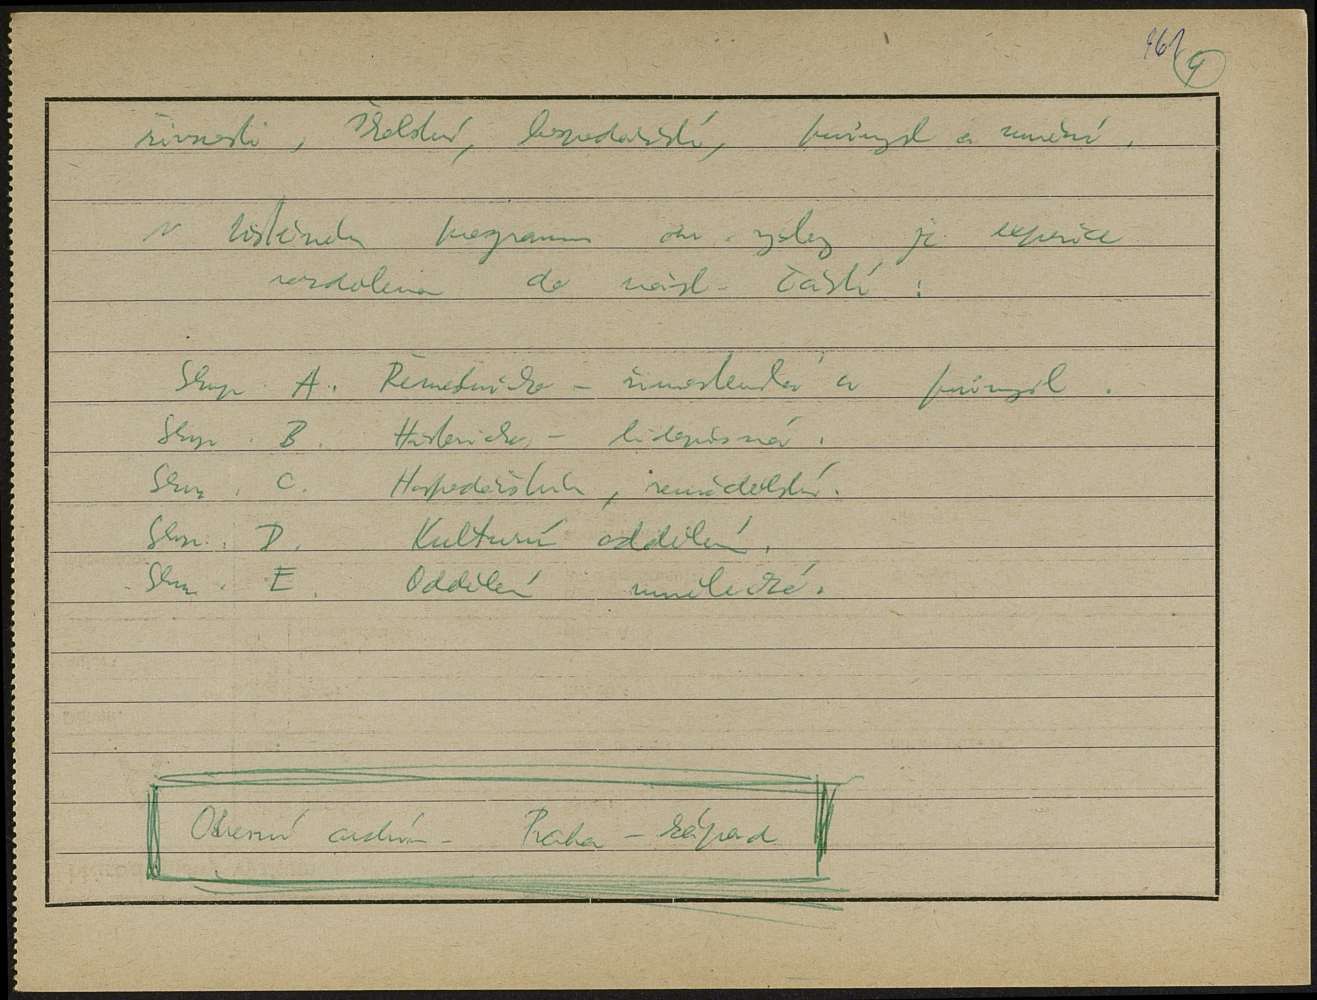 461 9
živnosti, školství, hospodářství, průmysl a umění.
V tištěném programu této výstavy je expozice
rozdělena do násl. částí:
Skup. A. Řemeslnicko – živnostenská a průmysl.
Skup. B. Historicko – lidopisná.
Skup. C. Hospodářství, zemědělství.
Skup. D. Kulturní oddělení.
Skup. E. Oddělení umělecké.
Okresní archiv – Praha – západ